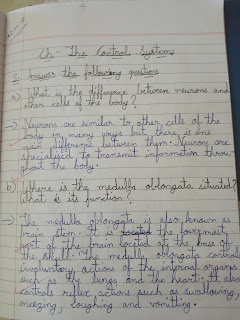 4
Ch - The Control Systems
C. Answer the following questions
a) What is the difference between neurons and
other cells of the body?
→ Neurons are similar to other cells of the
body in many ways but there is one
main difference between them. Neurons are
specialised to transmit information throu
ghout the body.
b) Where is the medulla oblongata situated?
What is its function?
→ The medulla oblongata is also known as
brain stem. It is located the lowermost
part of the brain located at the base of
the skull. The medulla oblongata controls
involuntary actions of the internal organs
such as the lungs and the heart. It also
controls reflex actions such as swallowing,
sneezing, coughing and vomitting.